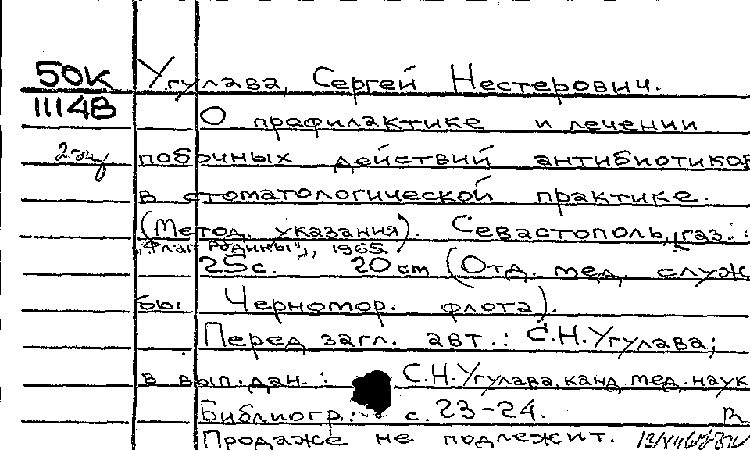 50К Угулава, Сергей Нестерович.
1114В О профилактике и лечении
2 экз побочных действий антибиотиков
в стоматологической практике.
(Метод. указания). Севастополь, газ.
"Флаг Родины", 1965.
25 с. 20 cm (Отд. мед. служ
бы Черномор. флота).
Перед загл. авт.: С.Н.Угулава;
в вып. дан.: С.Н.Угулава, канд. мед. наук
Библиогр.: с. 23-24. R
Продаже не подлежит.